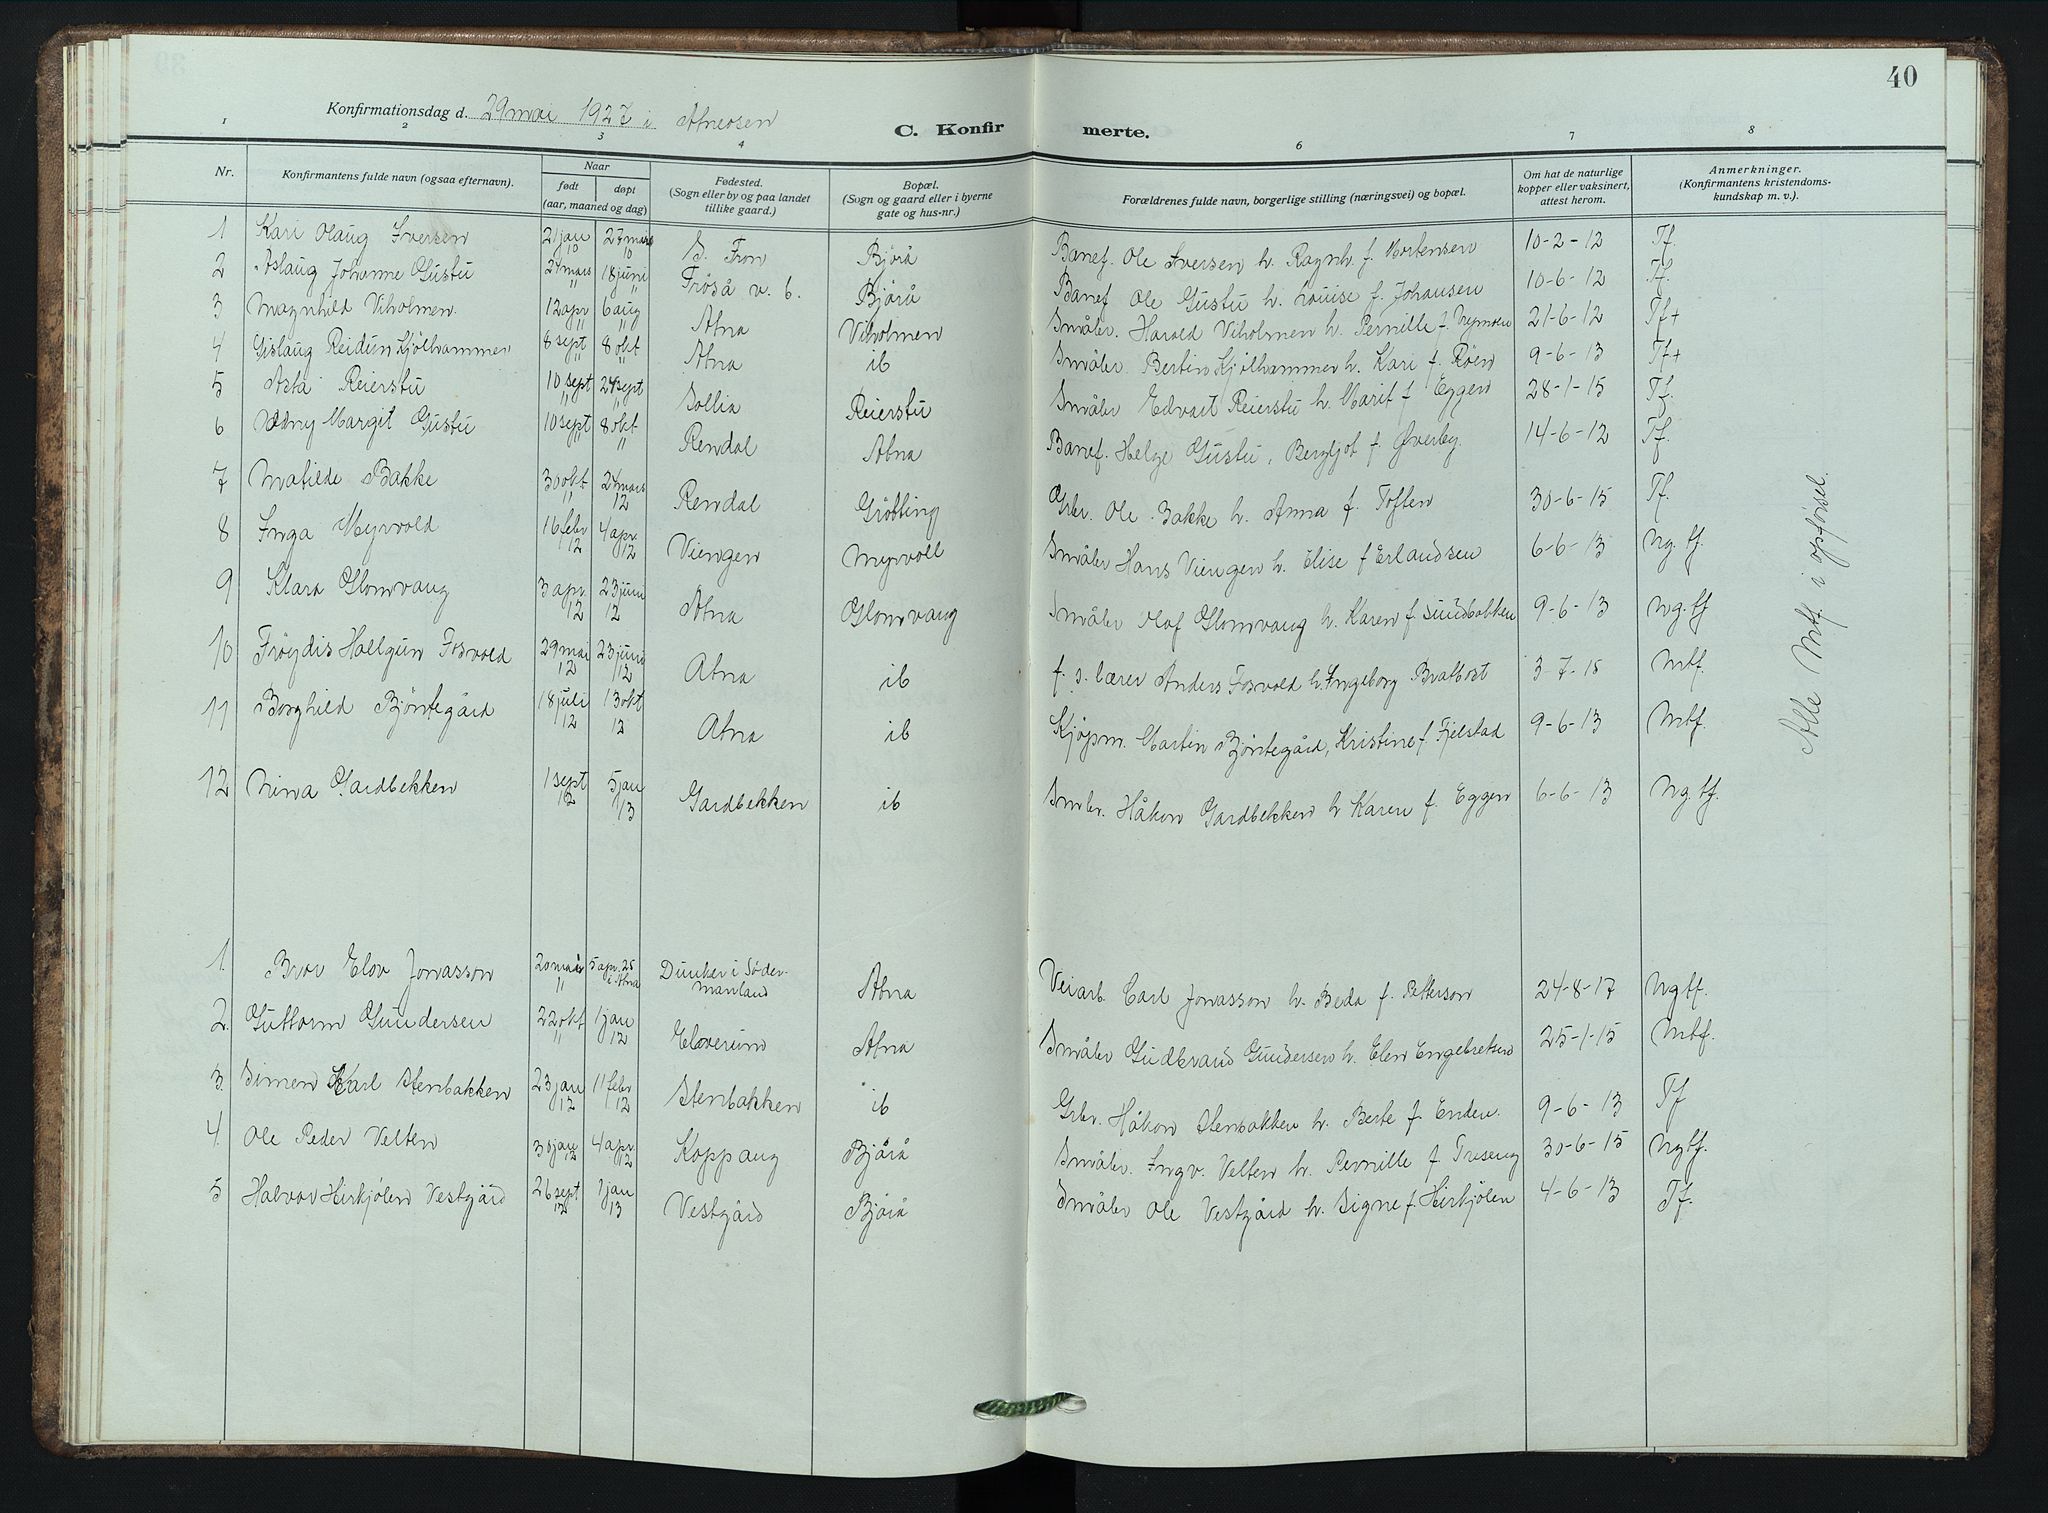 40
Konfirmationsdag d. 29 mai 1927 i Atneosen
C. Konfir merte.
1 2 3 4 6 7 8
Nr. Konfirmantens fulde navn (ogsaa efternavn). Naar født døpt (aar, maaned og dag) Fødested. (Sogn eller by og paa landet tillike gaard.) Bopæl. (Sogn og gaard eller i byerne gate og hus-nr.) Forældrenes fulde navn, borgerlige stilling (næringsvei) og bopæl. Om hat de naturlige kopper eller vaksinert, attest herom. Anmerkninger. (Konfirmantens kristendoms- kundskap m. v.).
1 Kari Olaug Iversen 21 jan 10 27 mars 10 S. Fron Bjørå Banef. Ole Iversen h. Ragnh. f. Mortensen 10-2-12 Tf.
2 Aslaug Johanne Gustu 24 mars " 18 juni " Frøså v. b. Bjørå Banef Ole Gustu h. Louise f. Johansen 10-6-12 Tf.
3 Magnhild Viholmen 12 apr " 6 aug " Atna Viholmen Småbr. Harald Viholmen h. Pernille f. 21-6-12 Tf+
4 Gislaug Reidun Kjølhammer 8 sept " 8 okt " Atna ib Småbr. Bertin Kjølhammer h. Kari f. Røen 9-6-13 Tf+
5 Asta Reierstu 10 sept " 24 sept " Sollia Reierstu Småbr Edvart Reierstu h. Marit f Eggen 28-1-15 Tf.
6 Odny Margit Gustu 10 sept " 8 okt " Rendal Atna Banef. Helge Gustu, Bergljot f Øverby. 14-6-12 Tf.
7 Matilde Bakke 30 okt " 24 mars 12 Rendal Grøtting Grbr. Ole Bakke h. Anna f. Toften 30-6-15 Tf.
8 Inga Myrvold 16 febr 12 4 apr 12 Viengen Myrvoll Småbr Hans Viengen h. Elise f Erlandsen 6-6-13 Ng. tf.
9 Klara Glomvang 3 apr. 12 23 juni 12 Atna Glomvang Småbr Olaf Glomvang h. Karen f. Sundbakken 9-6-13 Ng. tf
10 Frøydis Hallgun Fosvold 29 mai 12 23 juni 12 Atna ib f. s. lærer Anders Fosvold h. Ingeborg Bratbost 3-7-15 Mtf.
11 Borghild Bjøntegård 18 juli 12 13 okt 12 Atna ib Kjøpm. Martin Bjøntegård, Kristine f Fjelstad 9-6-13 Mtf.
12 Nina Gardbekken 1 sept 12 5 jan 13 Gardbekken ib Smbr. Håkon Gardbekken h Karen f. Eggen 6-6-13 Ng. tf.
Alle Mtf i opførsel.
1. Bror Elov Jonasson 20 mars " 5 apr. 25 i Atna Dunker i Søder- manland Atna Veiarb. Carl Jonasson h. Beda f. Petterson 24-8-17 Ng tf.
2. Guttorm Gundersen 22 okt " 1 jan 12 Elverum Atna Småbr Gudbrand Gundersen h. Elen Engebretsen 25-1-15 Mtf.
3. Simen Karl Stenbakken 23 jan 12 11 febr 12 Stenbakken ib Grbr. Håkon Stenbakken h. Berte f. Enden. 9-6-13 Tf
4. Ole Peder Velten 30 jan 12 4 apr 12 Koppang Bjørå Småbr. Ingv. Velten h. Pernille f Treseng 30-6-15 Ng tf.
5 Halvor Hirkjølen Vestgård 26 sept 12 1 jan 13 Vestgård Bjørå Småbr Ole Vestgård h. Signe f. Hirkjølen 4-6-13 Tf.